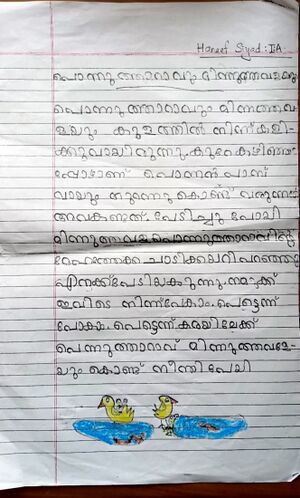 Haneef Siyad : II A
പൊന്നുത്താറാവും മിന്നുത്തവളയും
പൊന്നുത്താറാവും മിന്നുത്തവ
ളയും കുളത്തിൽ നിന്ന് കളി
ക്കുവായിരുന്നു. കുറേകഴിഞ്ഞ
പ്പോഴാണ് പൊന്നൻ പാമ്പ്
വായും തുറന്നു കൊണ്ട് വരുന്ന
തവകണ്ടത്. പേടിച്ചു പോയി
മിന്നുതവള പൊന്നുത്താറാവിന്റെ
ദേഹത്തേക്ക ചാടിക്കയറി പറഞ്ഞു
എനക്ക് പേടിയകുന്നു. നമുക്ക്
ഇവിടെ നിന്ന് പേകാം. പെട്ടെന്ന്
പോകാം. പെട്ടെന്ന് കരയിലേക്ക്
പെന്നുത്താറാവ് മിന്നുത്തവള
യും കൊണ്ട് നീന്തി പേയി